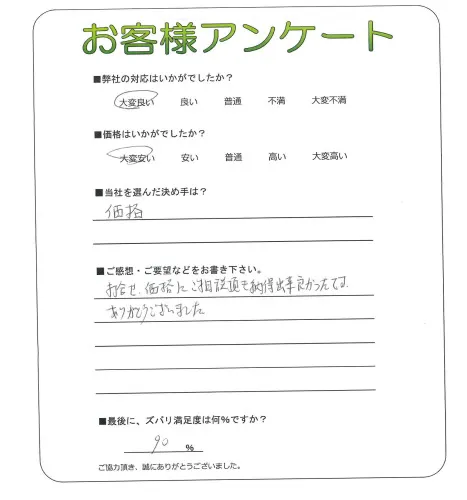 お客様アンケート
■弊社の対応はいかがでしたか？
大変良い 良い 普通 不満 大変不満
■価格はいかがでしたか？
大変安い 安い 普通 高い 大変高い
■当社を選んだ決め手は？
価格
■ご感想・ご要望などをお書き下さい。
価格に 納得出来良かったです
ありがとうございました
■最後に、ズバリ満足度は何％ですか？
90 ％
ご協力頂き、誠にありがとうございました。